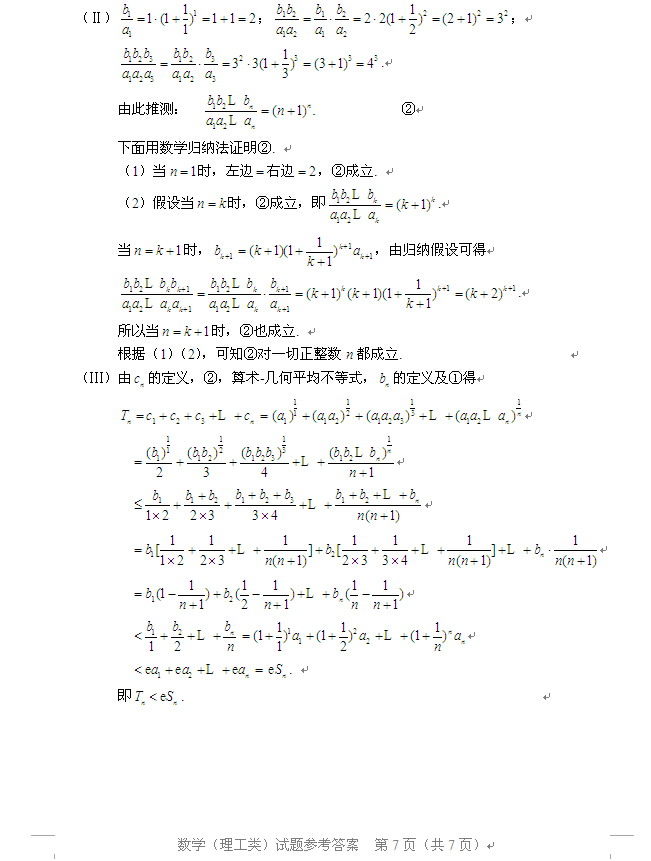 (Ⅱ) b₁/a₁=1·(1+1/1)¹=1+1=2; b₁b₂/a₁a₂=b₁/a₁·b₂/a₂=2·2(1+1/2)²=(2+1)²=3²;
b₁b₂b₃/a₁a₂a₃=b₁b₂/a₁a₂·b₃/a₃=3²·3(1+1/3)³=(3+1)³=4³.
由此推测: b₁b₂L bₙ/a₁a₂L aₙ=(n+1)ⁿ. ②
下面用数学归纳法证明②.
(1)当n=1时,左边=右边=2,②成立.
(2)假设当n=k时,②成立,即b₁b₂L bₖ/a₁a₂L aₖ=(k+1)ᵏ.
当n=k+1时,bₖ₊₁=(k+1)(1+1/(k+1))ᵏ⁺¹aₖ₊₁,由归纳假设可得
b₁b₂L bₖbₖ₊₁/a₁a₂L aₖaₖ₊₁=b₁b₂L bₖ/a₁a₂L aₖ·bₖ₊₁/aₖ₊₁=(k+1)ᵏ(k+1)(1+1/(k+1))ᵏ⁺¹=(k+2)ᵏ⁺¹.
所以当n=k+1时,②也成立.
根据(1)(2),可知②对一切正整数n都成立.
(III)由cₙ的定义,②,算术-几何平均不等式,bₙ的定义及①得
Tₙ=c₁+c₂+c₃+L +cₙ=(a₁)^(1/1)+(a₁a₂)^(1/2)+(a₁a₂a₃)^(1/3)+L +(a₁a₂L aₙ)^(1/n)
=(b₁)^(1/1)/2+(b₁b₂)^(1/2)/3+(b₁b₂b₃)^(1/3)/4+L +(b₁b₂L bₙ)^(1/n)/(n+1)
≤b₁/(1×2)+(b₁+b₂)/(2×3)+(b₁+b₂+b₃)/(3×4)+L +(b₁+b₂+L +bₙ)/(n(n+1))
=b₁[1/(1×2)+1/(2×3)+L +1/(n(n+1))]+b₂[1/(2×3)+1/(3×4)+L +1/(n(n+1))]+L +bₙ·1/(n(n+1))
=b₁(1-1/(n+1))+b₂(1/2-1/(n+1))+L +bₙ(1/n-1/(n+1))
<b₁/1+b₂/2+L +bₙ/n=(1+1/1)¹a₁+(1+1/2)²a₂+L +(1+1/n)ⁿaₙ
<ea₁+ea₂+L +eaₙ=eSₙ.
即Tₙ<eSₙ.
数学(理工类)试题参考答案 第7页(共7页)